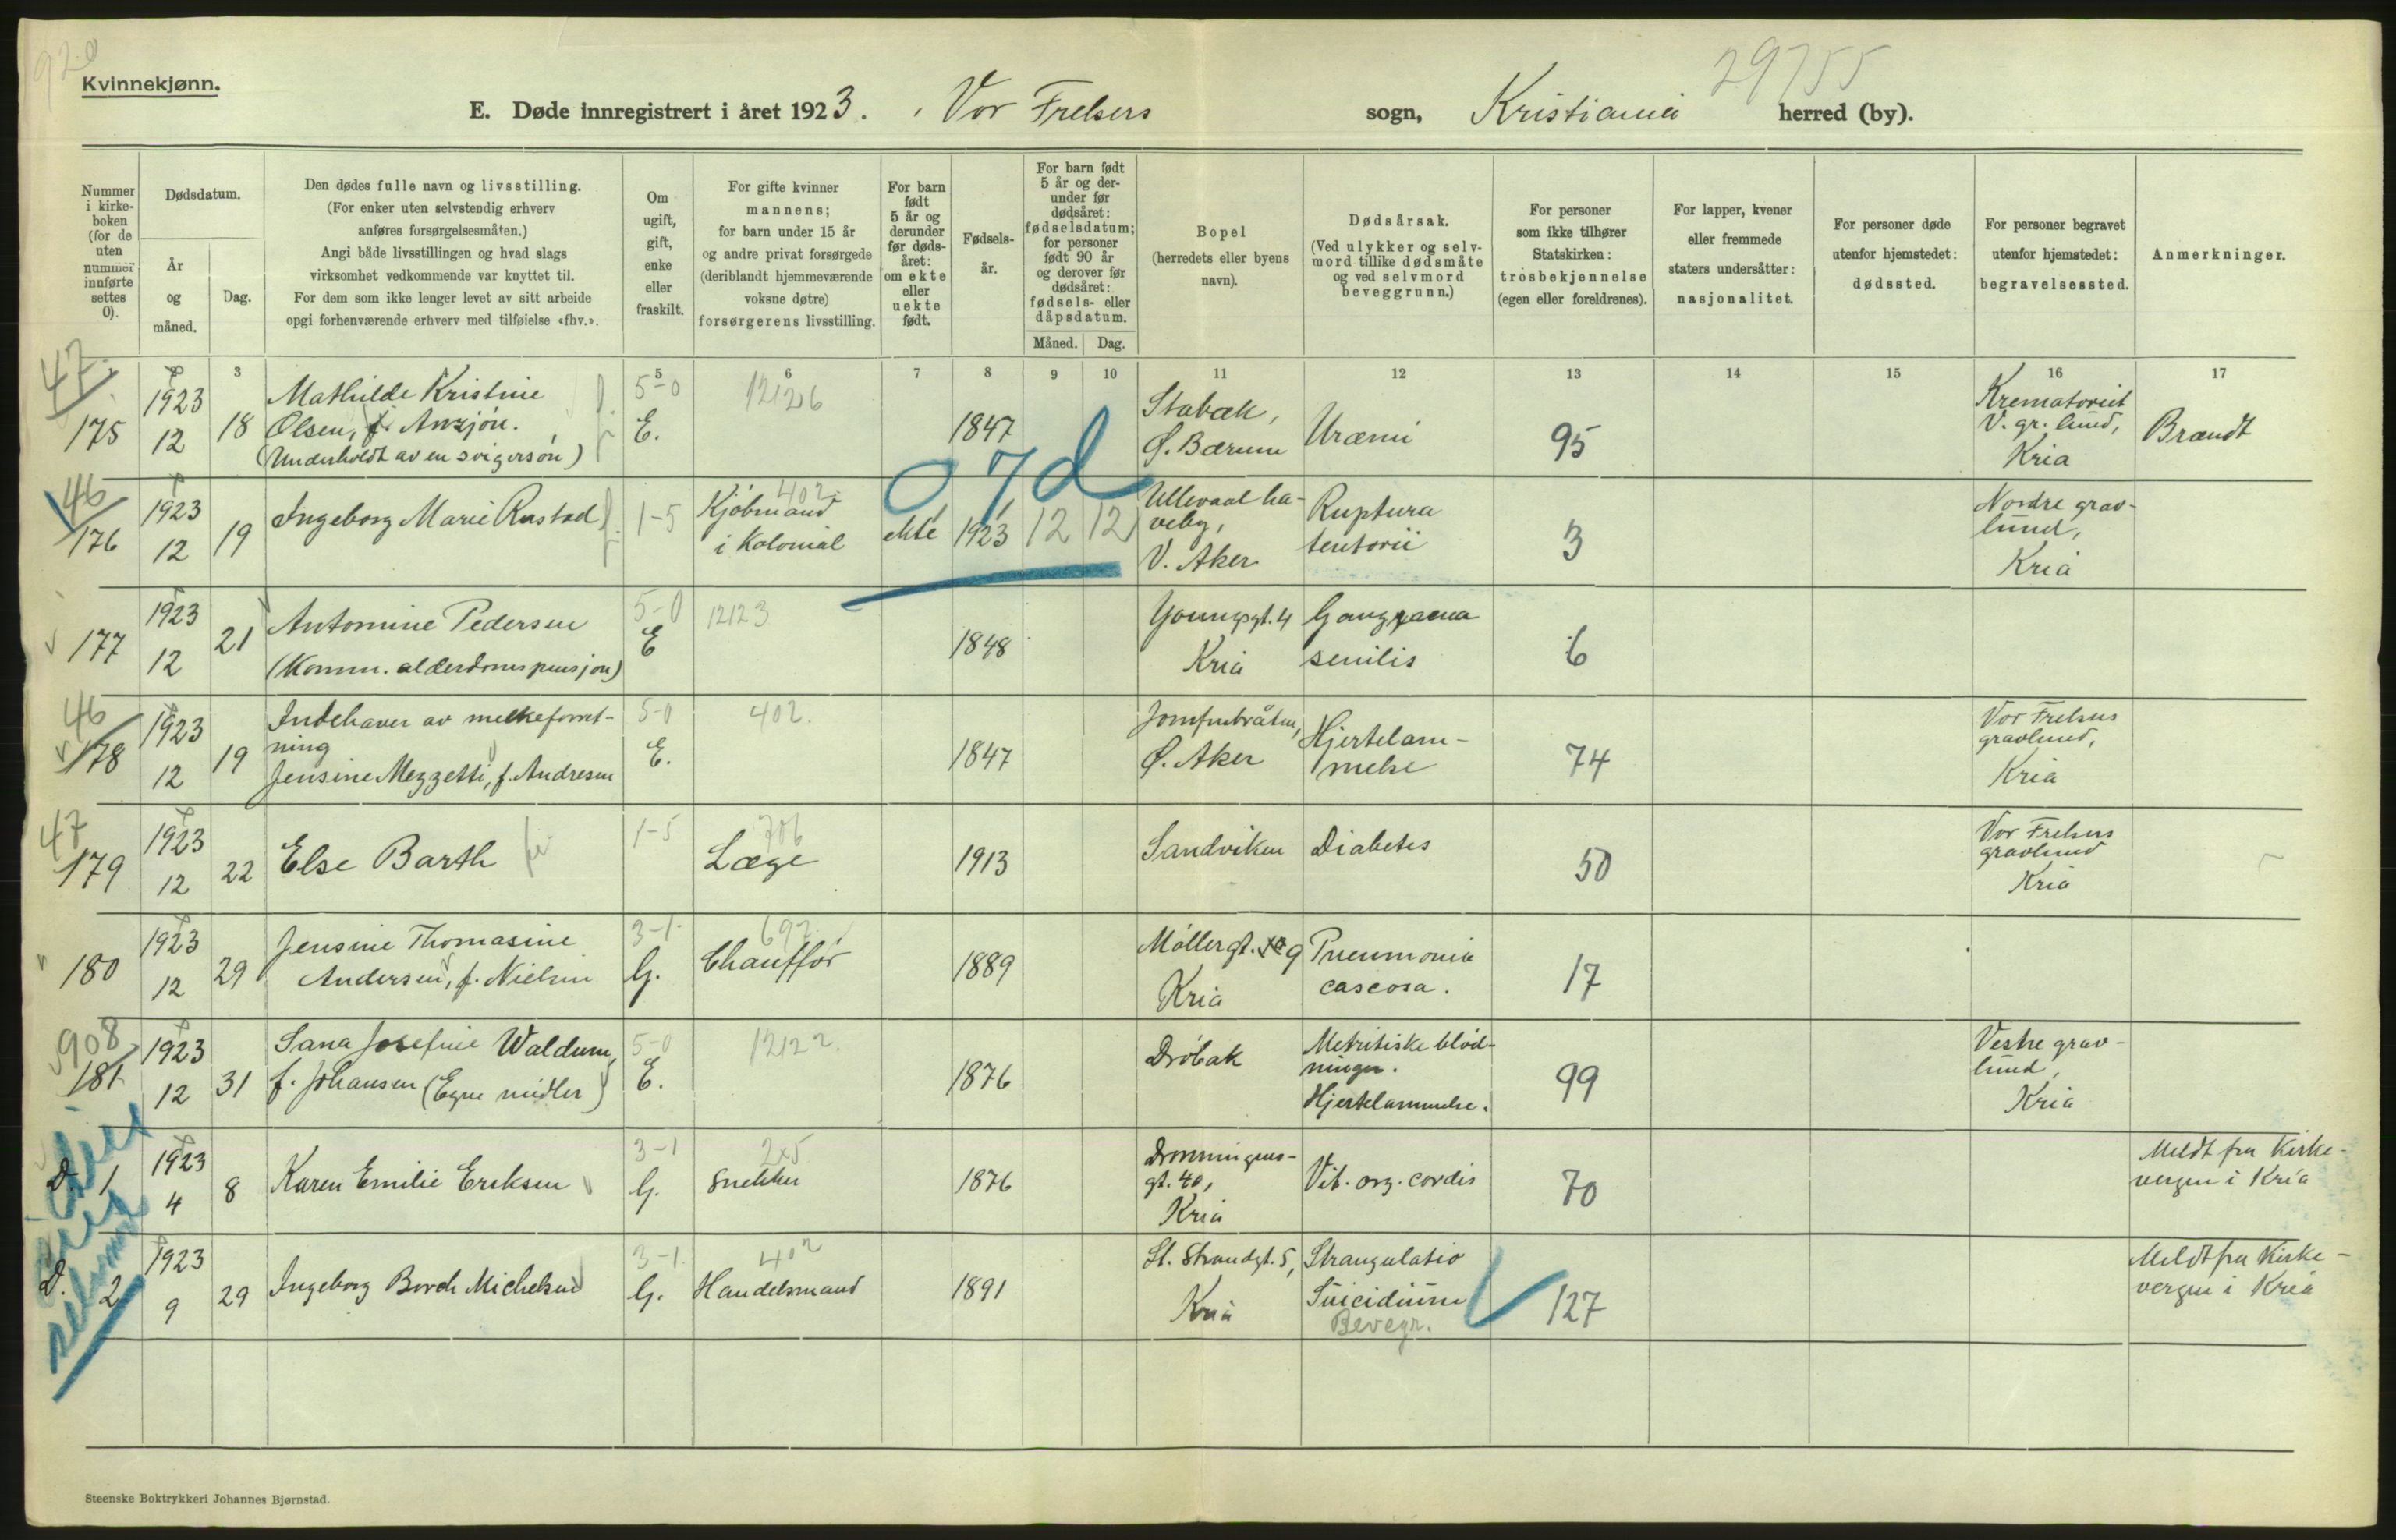 920
Kvinnekjønn.
29755
E. Døde innregistrert i året 1923. Vor Frelsers sogn, Kristiania herred (by).
Nummer i kirkeboken (for de uten nummer innførte settes 0).
Dødsdatum.
År og måned.
Dag.
Den dødes fulle navn og livsstilling.
(For enker uten selvstendig erhverv
anføres forsørgelsesmåten.)
Angi både livsstillingen og hvad slags
virksomhet vedkommende var knyttet til.
For dem som ikke lenger levet av sitt arbeide
opgi forhenværende erhverv med tilføielse «fhv.».
Om ugift, gift, enke eller fraskilt.
For gifte kvinner
mannens;
for barn under 15 år
og andre privat forsørgede
(deriblandt hjemmeværende
voksne døtre)
forsørgerens livsstilling.
For barn født 5 år og derunder før dødsåret: om ekte eller uekte født.
Fødselsår.
For barn født
5 år og der-
under før
dødsåret:
fødselsdatum;
for personer
født 90 år
og derover før
dødsåret:
fødsels- eller
dåpsdatum.
Måned. Dag.
Bopel
(herredets eller byens
navn).
Dødsårsak.
(Ved ulykker og selv-
mord tillike dødsmåte
og ved selvmord
beveggrunn.)
For personer
som ikke tilhører
Statskirken:
trosbekjennelse
(egen eller foreldrenes).
For lapper, kvener
eller fremmede
staters undersåtter:
nasjonalitet.
For personer døde
utenfor hjemstedet:
dødssted.
For personer begravet
utenfor hjemstedet:
begravelsessted.
Anmerkninger.
3 5 6 7 8 9 10 11 12 13 14 15 16 17
47
175 1923 12 18 Mathilde Kristine
Olsen, f. Anzjøn.
(Underholdt av en svigersøn)
5-0 E. 12126 1847 Stabæk,
Ø. Bærum
Uræmi 95 Krematoriet
V. gr. lund,
Kria
Brandt
07d
46
176 1923 12 19 Ingeborg Marie Rustad 1-5 402
Kjøbmand
i Kolonial
ekte 1923 12 12 Ullevaal ha-
veby,
V. Aker
Ruptura
tentorii
3 Nordre grav-
lund,
Kria
177 1923 12 21 Antomine Pedersen
(Komm. alderdomspensjon)
5-0 E 12123 1848 Youngsgt. 4
Kria
Gangraena
senilis
6
46
178 1923 12 19 Indehaver av melkeforret-
ning
Jensine Mezzetti, f. Andresen
5-0 E. 402. 1847 Jomfrubråten,
Ø. Aker
Hjertelam-
melse
74 Vor Frelsers
gravlund,
Kria
47
179 1923 12 22 Else Barth 1-5 706
Læge
1913 Sandviken Diabetes 50 Vor Frelsers
gravlund
Kria
180 1923 12 29 Jensine Thomasine
Andersen, f. Nielsen
3-1 G. 692
Chauffør
1889 Møllergt. 9
Kria
Pneumonia
caseosa.
17
908
181 1923 12 31 Sana Josefine Waldum,
f. Johansen (Egne midler)
5-0 E. 12122. 1876 Drøbak Metritiske blød-
ninger.
Hjertelammelse.
99 Vestre grav-
lund,
Kria
D. 1 1923 4 8 Karen Emilie Eriksen 3-1 G. Snekker 1876 Dronningens-
gt. 40,
Kria
Vit. org. cordis 70 Meldt fra Kirke-
vergen i Kria
D. 2 1923 9 29 Ingeborg Borch Michelsen 3-1 G. 402
Handelsmand
1891 St. Strandgt. 5,
Kria
Strangulatio
Suicidium
Bevegr.
127 Meldt fra Kirke-
vergen i Kria
selvmord
Steenske Boktrykkeri Johannes Bjørnstad.